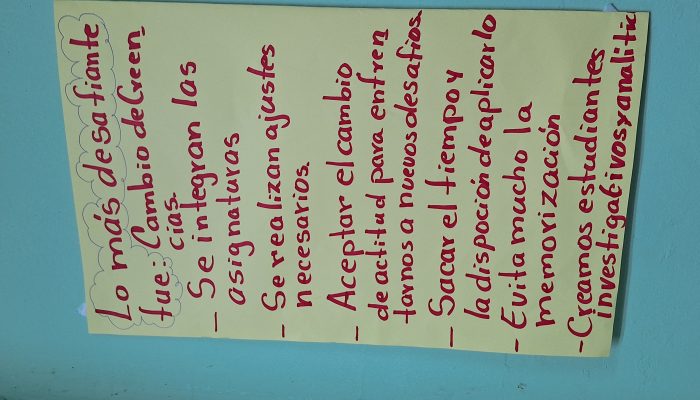 Lo más desafiante
fue: Cambio de Creen-
cias.
- Se integran las
asignaturas
- Se realizan ajustes
necesarios.
- Aceptar el cambio
de actitud para enfren
tarnos a nuevos desafios.
- Sacar el tiempo y
la dispoción de aplicarlo
- Evita mucho la
memorización
- Creamos estudiantes
investigativos y analitic